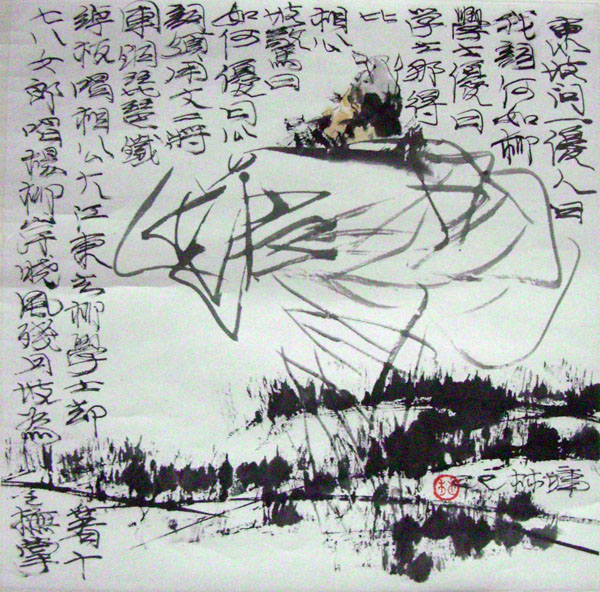 東坡问一優人曰
我詞何如柳
學士優曰
学士那得
比
相公
坡驚曰
如何優曰公
詞須用丈二將
軍銅琵琶鐵
绰板唱相公大江東去柳學士却著十
七八女郎唱楊柳岸曉風残月坡為之撫掌
林墉